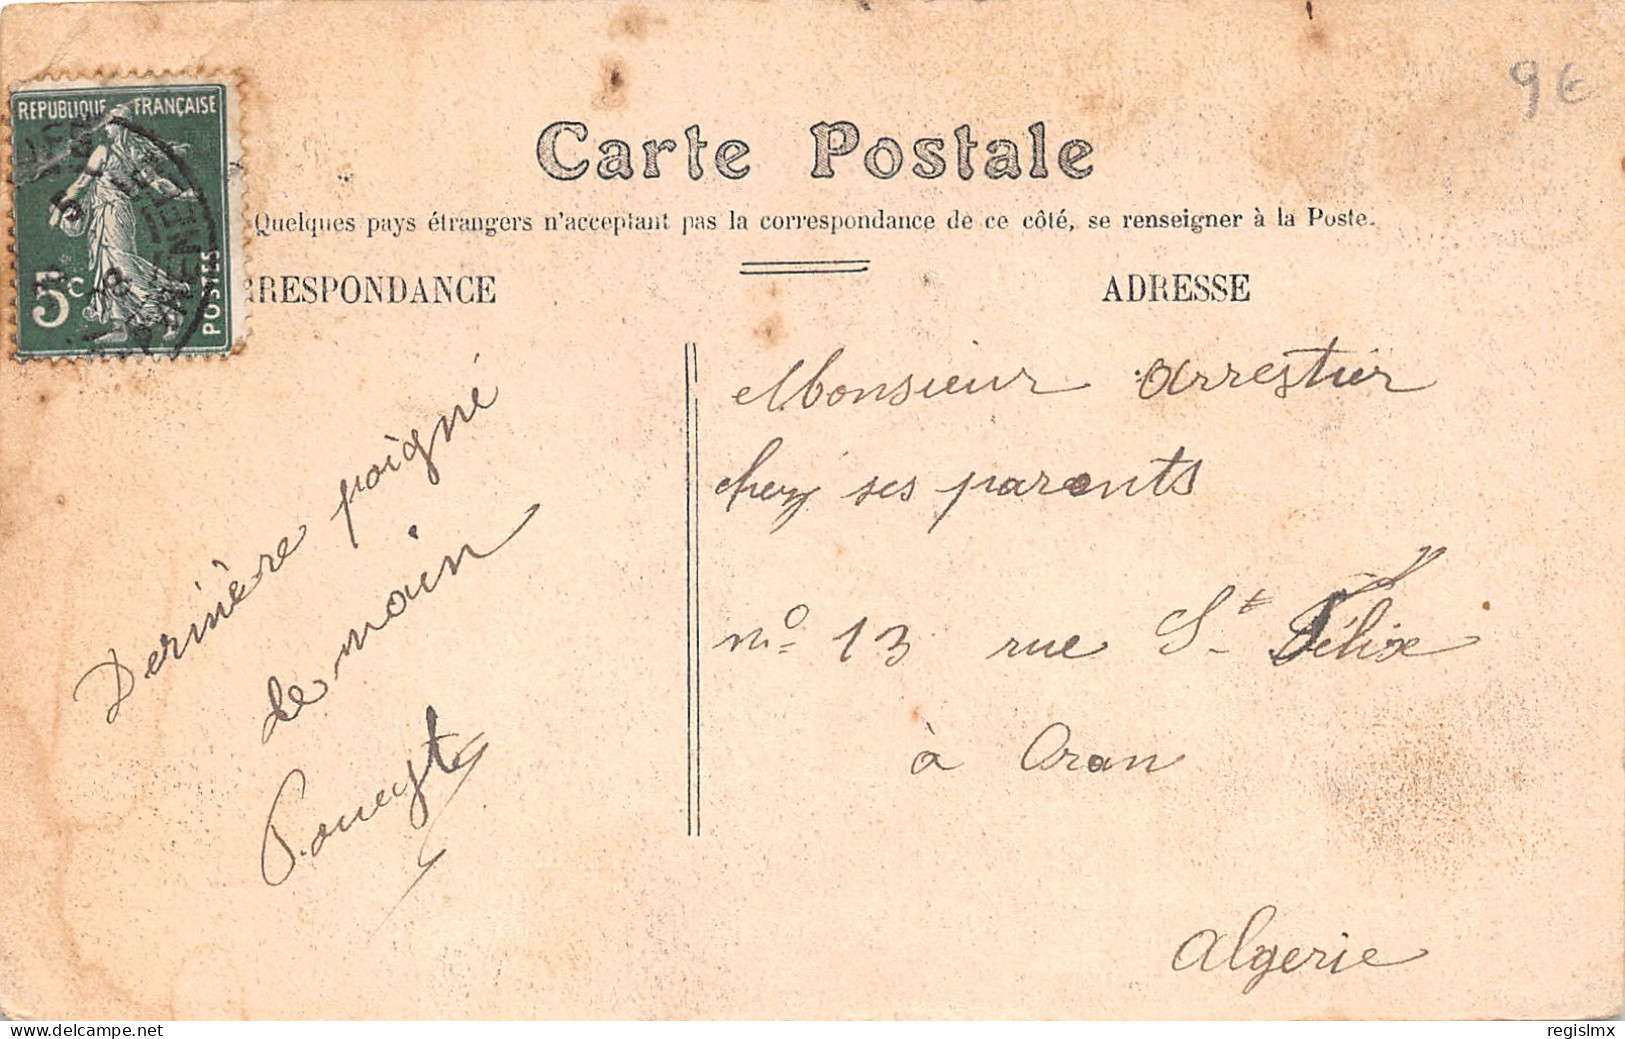 REPUBLIQUE FRANÇAISE
5c
POSTES
9 €
Carte Postale
Quelques pays étrangers n'acceptant pas la correspondance de ce côté, se renseigner à la Poste.
RRESPONDANCE
ADRESSE
Dernière poigné
de main
Monsieur Arrestier
chez ses parents
no 13 rue St Félix
à Oran
Algérie
www.delcampe.net
regislmx